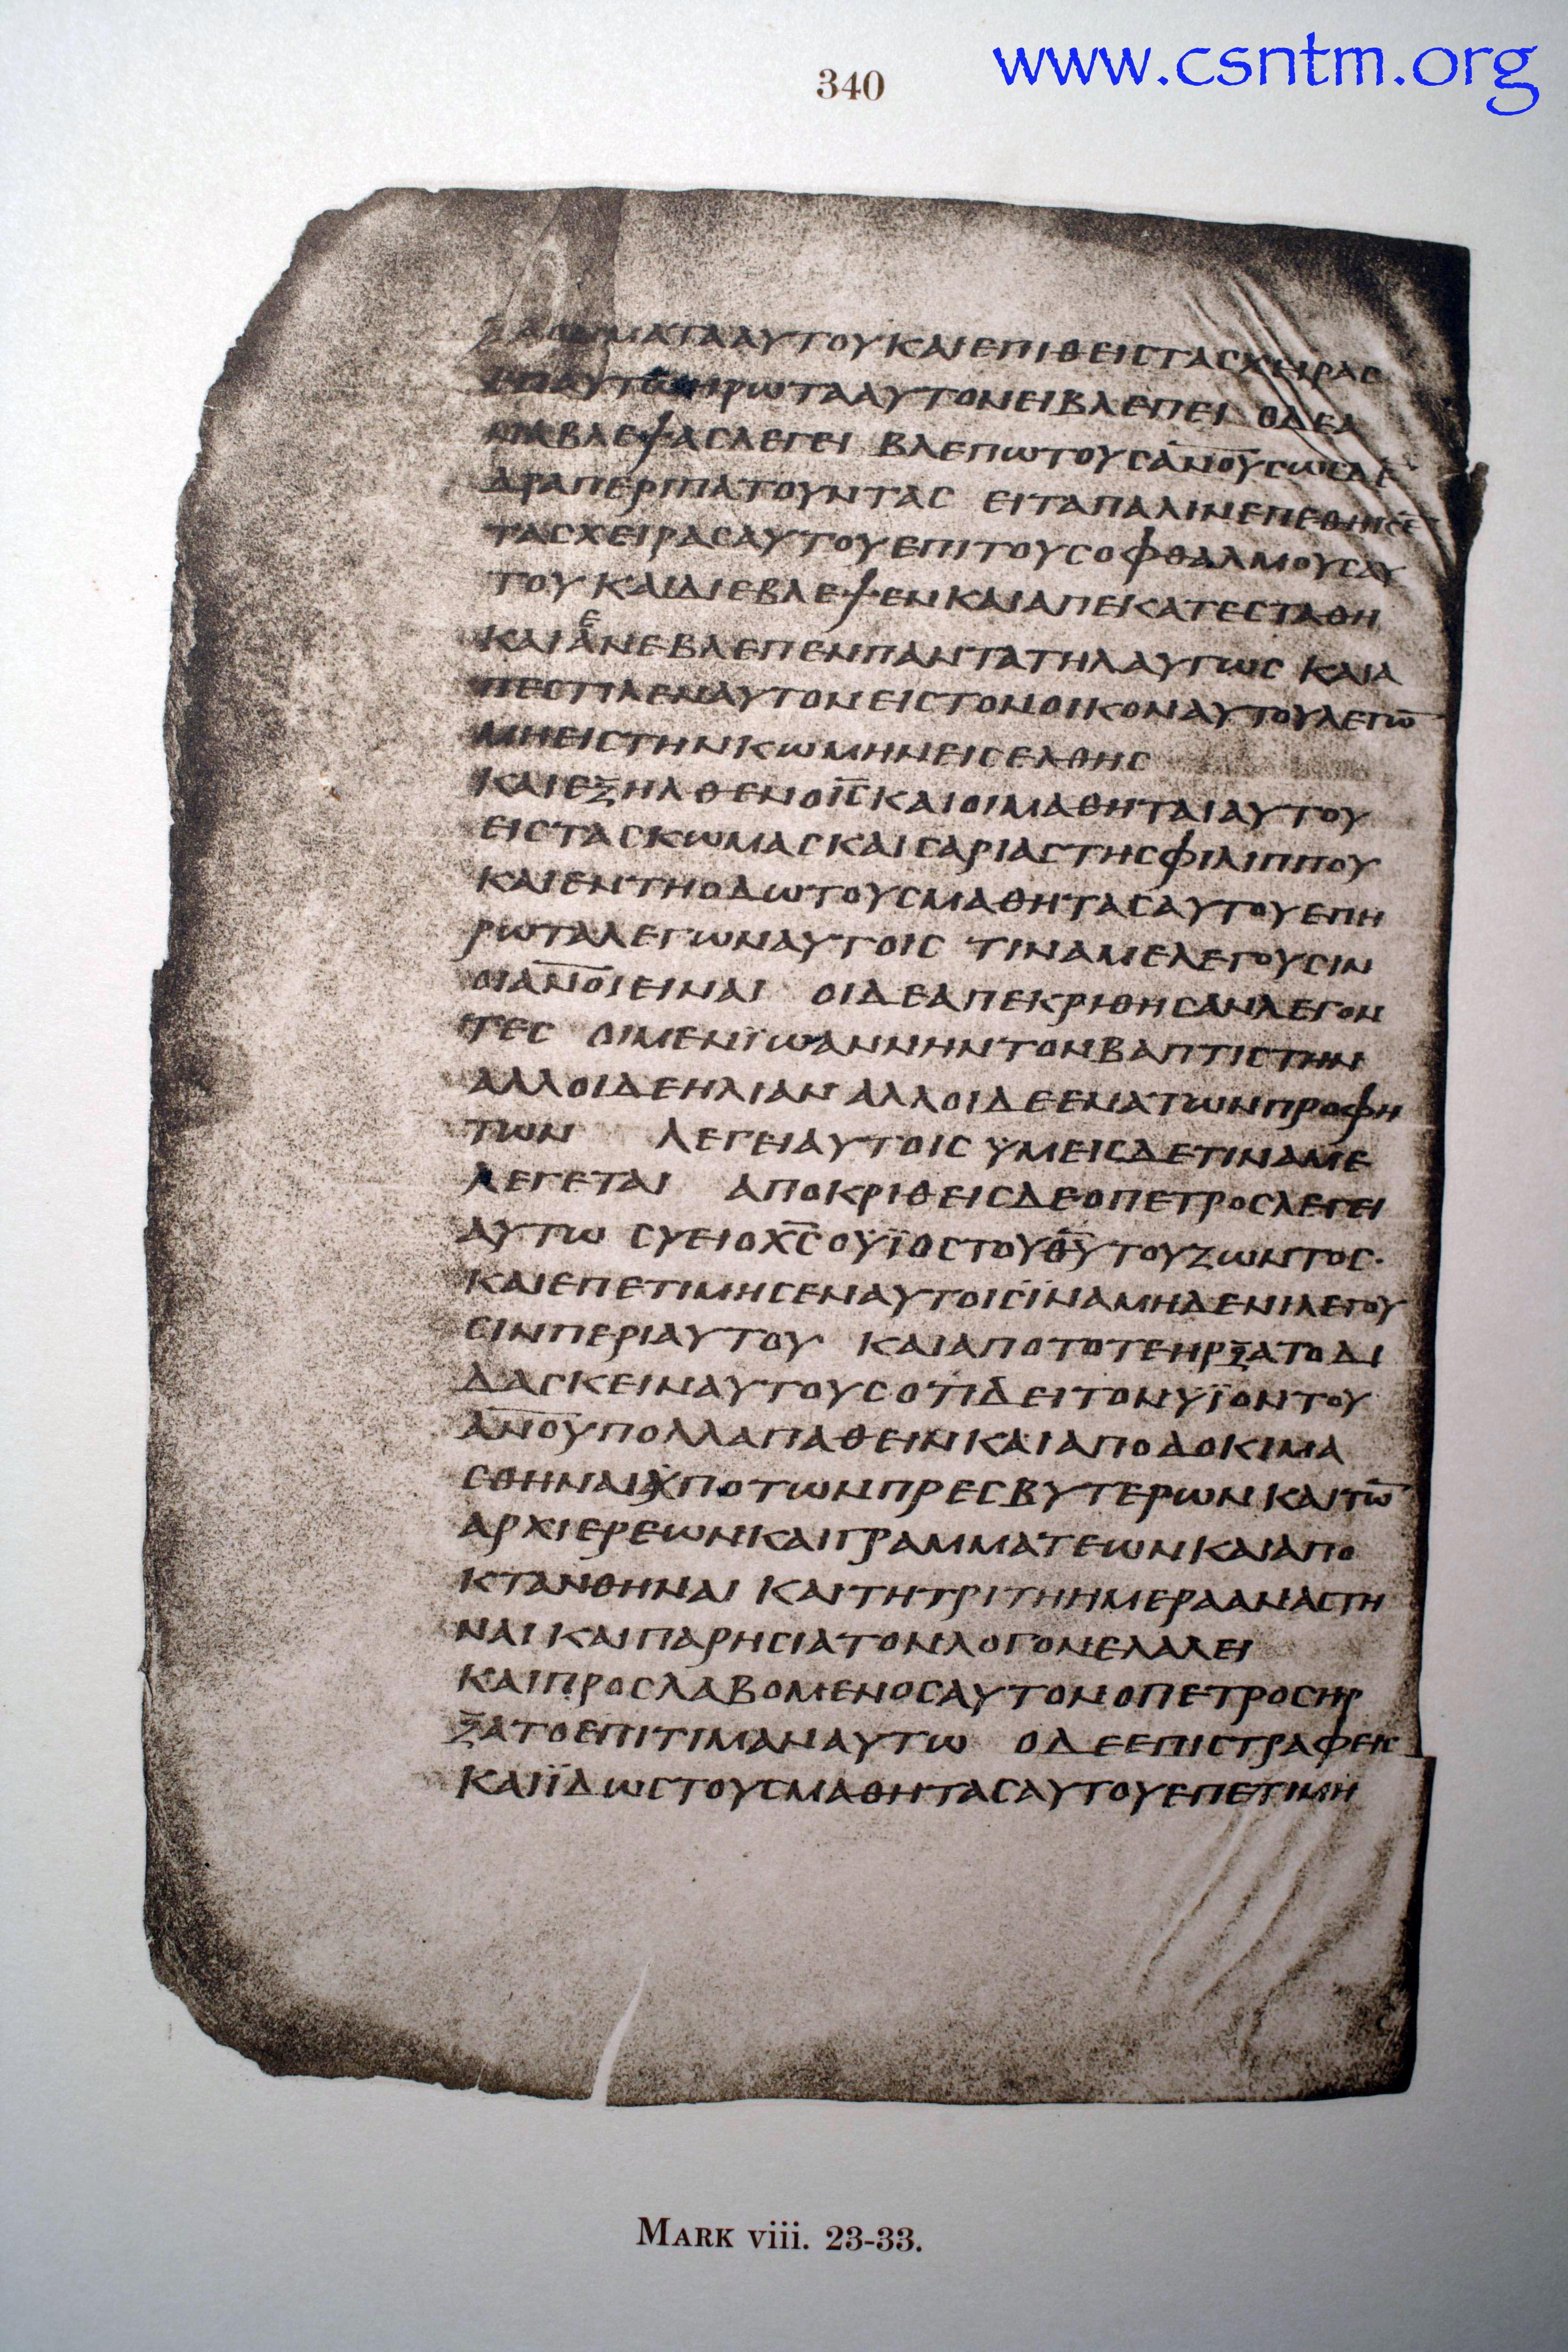 340
www.csntm.org
ΜΑΤΑΑΥΤΟΥΚΑΙΕΠΙΘΕΙСΤΑСΧΕΙΡΑС
ΕΠΑΥΤΩΗΡΩΤΑΑΥΤΟΝΕΙΒΛΕΠΕΙ ΟΔΕΑ
ΝΑΒΛΕΨΑСΛΕΓΕΙ ΒΛΕΠΩΤΟΥСΑ̅Ν̅Ο̅Υ̅СΩСΔΕ̅
ΔΡΑΠΕΡΙΠΑΤΟΥΝΤΑС ΕΙΤΑΠΑΛΙΝΕΠΕΘΗΚΕ̅
ΤΑСΧΕΙΡΑСΑΥΤΟΥΕΠΙΤΟΥСΟΦΘΑΛΜΟΥСΑΥ
ΤΟΥ ΚΑΙΔΙΕΒΛΕΨΕΝΚΑΙΑΠΕΚΑΤΕСΤΑΘΗ
ΚΑΙΑΝΕΒΛΕΠΕΝΠΑΝΤΑΤΗΛΑΥΓΩС ΚΑΙΑ
ΠΕСΤΙΛΕΝΑΥΤΟΝΕΙСΤΟΝΟΙΚΟΝΑΥΤΟΥΛΕΓΩ̅
ΜΗΕΙСΤΗΝΚΩΜΗΝΕΙСΕΛΘΗС
ΚΑΙΕΞΗΛΘΕΝΟΙ̅С̅ΚΑΙΟΙΜΑΘΗΤΑΙΑΥΤΟΥ
ΕΙСΤΑСΚΩΜΑСΚΑΙСΑΡΙΑСΤΗСΦΙΛΙΠΠΟΥ
ΚΑΙΕΝΤΗΟΔΩΤΟΥСΜΑΘΗΤΑСΑΥΤΟΥΕΠΗ
ΡΩΤΑΛΕΓΩΝΑΥΤΟΙС ΤΙΝΑΜΕΛΕΓΟΥСΙΝ
ΟΙΑ̅Ν̅Ο̅Ι̅ΕΙΝΑΙ ΟΙΔΕΑΠΕΚΡΙΘΗСΑΝΛΕΓΟΝ
ΤΕС ΟΙΜΕΝΪΩΑΝΝΗΝΤΟΝΒΑΠΤΙСΤΗΝ
ΑΛΛΟΙΔΕΗΛΙΑΝ ΑΛΛΟΙΔΕΕΝΑΤΩΝΠΡΟΦΗ
ΤΩΝ ΛΕΓΕΙΑΥΤΟΙС ΥΜΕΙСΔΕΤΙΝΑΜΕ
ΛΕΓΕΤΑΙ ΑΠΟΚΡΙΘΕΙСΔΕΟΠΕΤΡΟСΛΕΓΕΙ
ΑΥΤΩ СΥΕΙΟΧ̅С̅ΟΥΪΟСΤΟΥΘ̅Υ̅ΤΟΥΖΩΝΤΟС·
ΚΑΙΕΠΕΤΙΜΗСΕΝΑΥΤΟΙСΪΝΑΜΗΔΕΝΙΛΕΓΟΥ
СΙΝΠΕΡΙΑΥΤΟΥ ΚΑΙΑΠΟΤΟΤΕΗΡΞΑΤΟΔΙ
ΔΑСΚΕΙΝΑΥΤΟΥСΟΤΙΔΕΙΤΟΝΥΪΟΝΤΟΥ
Α̅Ν̅Ο̅Υ̅ΠΟΛΛΑΠΑΘΕΙΝΚΑΙΑΠΟΔΟΚΙΜΑ
СΘΗΝΑΙΥΠΟΤΩΝΠΡΕСΒΥΤΕΡΩΝΚΑΙΤΩ̅
ΑΡΧΙΕΡΕΩΝΚΑΙΓΡΑΜΜΑΤΕΩΝΚΑΙΑΠΟ
ΚΤΑΝΘΗΝΑΙ ΚΑΙΤΗΤΡΙΤΗΗΜΕΡΑΑΝΑСΤΗ
ΝΑΙΚΑΙΠΑΡΗСΙΑΤΟΝΛΟΓΟΝΕΛΑΛΕΙ
ΚΑΙΠΡΟСΛΑΒΟΜΕΝΟСΑΥΤΟΝΟΠΕΤΡΟСΗΡ
ΞΑΤΟΕΠΙΤΙΜΑΝΑΥΤΩ ΟΔΕΕΠΙСΤΡΑΦΕΙС
ΚΑΙΪΔΩСΤΟΥСΜΑΘΗΤΑСΑΥΤΟΥΕΠΕΤΙΜΗ
MARK viii. 23-33.